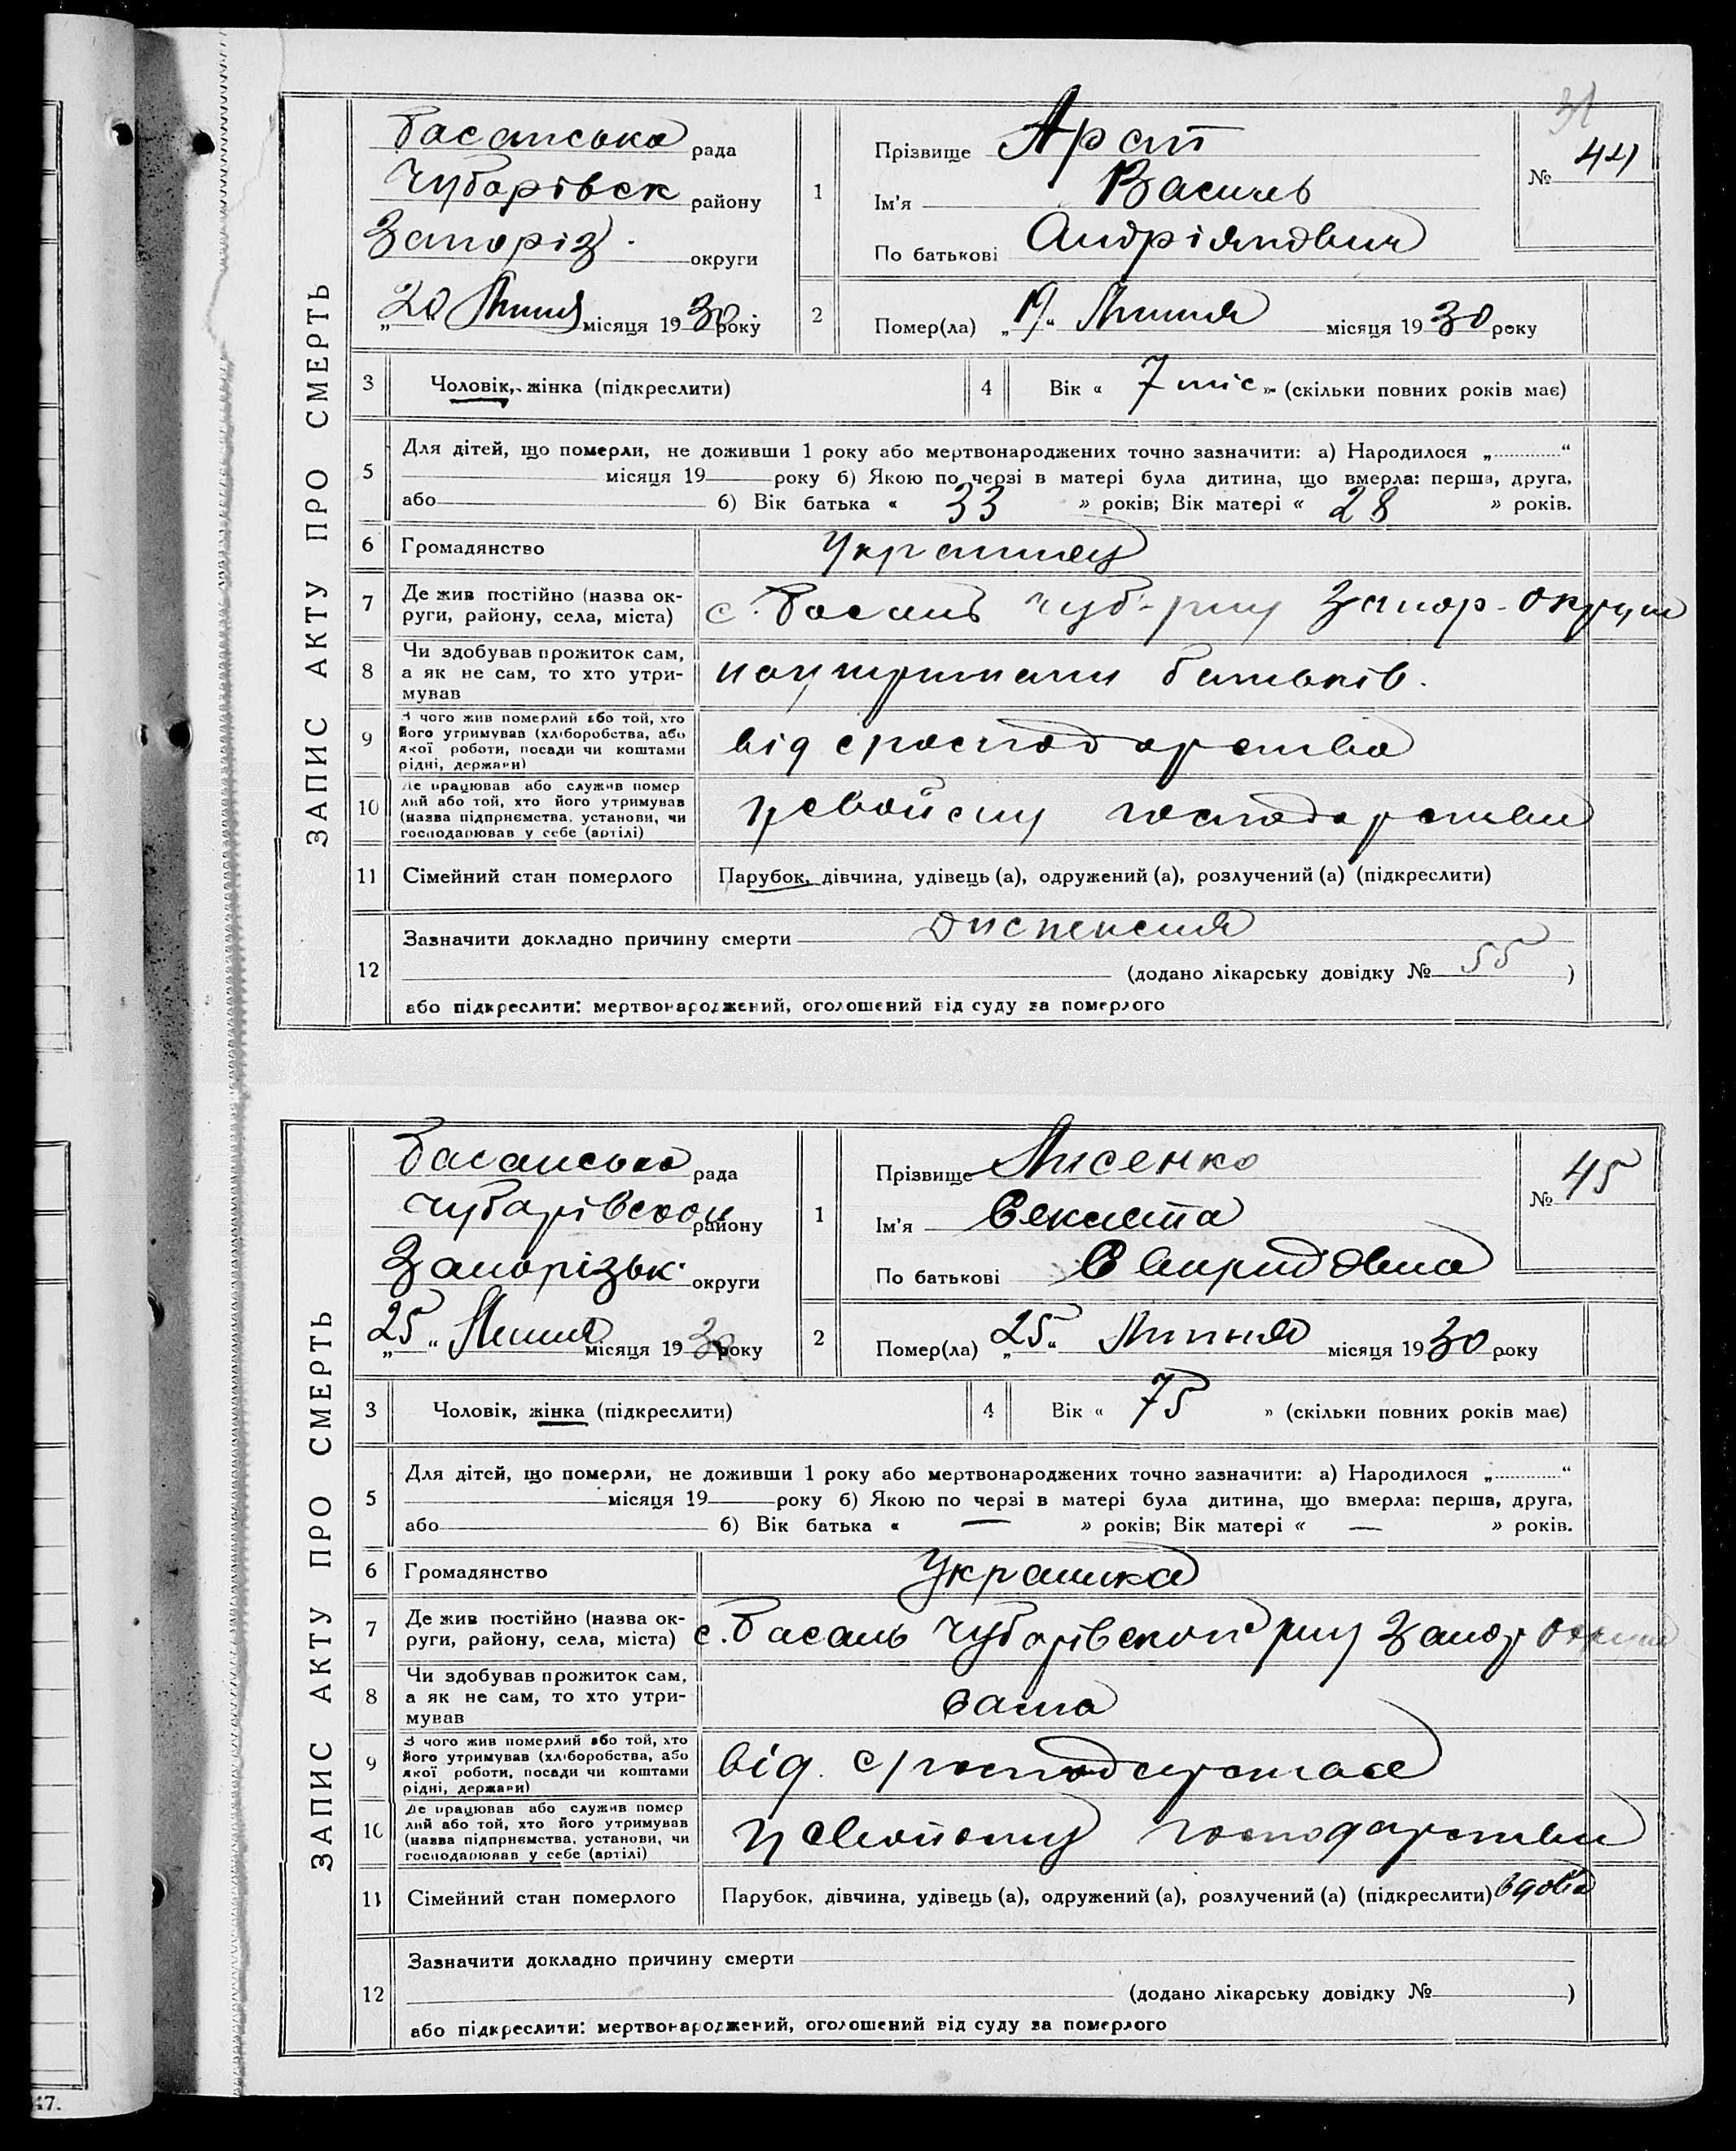 31
ЗАПИС АКТУ ПРО СМЕРТЬ
Басанська рада
Чубарівск району
Запоріз. округи
„20“ Липня місяця 1930 року
1 Прізвище Арст
Ім'я Василь
По батькові Андріянович
№ 44
2 Помер(ла) „19“ Липня місяця 1930 року
3 Чоловік, жінка (підкреслити)
4 Вік « 7 міс » (скільки повних років має)
5 Для дітей, що померли, не доживши 1 року або мертвонароджених точно зазначити: а) Народилося „ “
місяця 19 року б) Якою по черзі в матері була дитина, що вмерла: перша, друга,
або б) Вік батька « 33 » років; Вік матері « 28 » років.
6 Громадянство Украинец
7 Де жив постійно (назва ок-
руги, району, села, міста) с. Басань Чуб-рну Запор-округи
8 Чи здобував прожиток сам,
а як не сам, то хто утри-
мував на утриманн батьків.
9 З чого жив померлий або той, хто
його утримував (хліборобства, або
якої роботи, посади чи коштами
рідні, держави) від с господарства
10 Де працював або служив помер
лий або той, хто його утримував
(назва підприємства, установи, чи
господарював у себе (артілі) у свойому господарстви
11 Сімейний стан померлого Парубок, дівчина, удівець (а), одружений (а), розлучений (а) (підкреслити)
12 Зазначити докладно причину смерти диспепсия
(додано лікарську довідку № 55 )
або підкреслити: мертвонароджений, оголошений від суду за померлого
ЗАПИС АКТУ ПРО СМЕРТЬ
Басанська рада
Чубарівской району
Запорізьк. округи
„25“ Липня місяця 1930 року
1 Прізвище Лисенко
Ім'я Секлета
По батькові Свиридовна
№ 45
2 Помер(ла) „25“ Липня місяця 1930 року
3 Чоловік, жінка (підкреслити)
4 Вік « 75 » (скільки повних років має)
5 Для дітей, що померли, не доживши 1 року або мертвонароджених точно зазначити: а) Народилося „ “
місяця 19 року б) Якою по черзі в матері була дитина, що вмерла: перша, друга,
або б) Вік батька « — » років; Вік матері « — » років.
6 Громадянство Украинка
7 Де жив постійно (назва ок-
руги, району, села, міста) с. Басань Чубарівской рну Запор округи
8 Чи здобував прожиток сам,
а як не сам, то хто утри-
мував сама
9 З чого жив померлий або той, хто
його утримував (хліборобства, або
якої роботи, посади чи коштами
рідні, держави) від с/господарства
10 Де працював або служив помер
лий або той, хто його утримував
(назва підприємства, установи, чи
господарював у себе (артілі) у свойому господарстви
11 Сімейний стан померлого Парубок, дівчина, удівець (а), одружений (а), розлучений (а) (підкреслити) вдова
12 Зазначити докладно причину смерти
(додано лікарську довідку № )
або підкреслити: мертвонароджений, оголошений від суду за померлого
47.